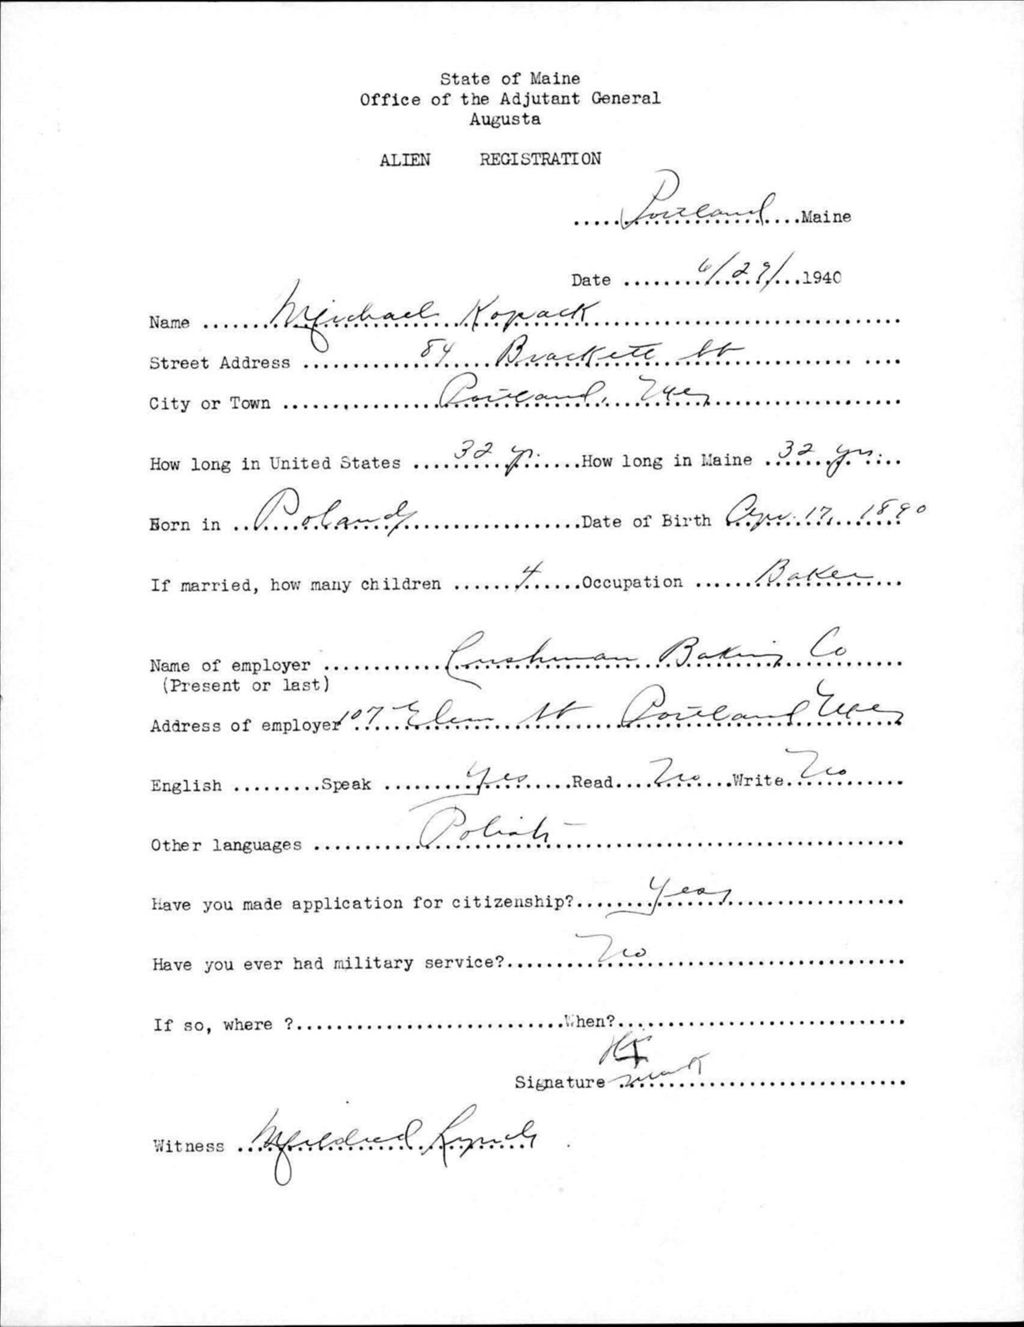 State of Maine
Office of the Adjutant General
Augusta
ALIEN REGISTRATION
.....Portland....Maine
Date ........6/29/...1940
Name .......Michael Kopack..............................
Street Address ............84 Brackett St.............. ....
City or Town ...............Portland, Me...................
How long in United States ....32 yr......How long in Maine ..32 yrs...
Born in ..Poland.................Date of Birth Apr. 17, 1890
If married, how many children ......4.....Occupation ......Baker...
Name of employer ...........Cushman Baking Co.....
(Present or last)
Address of employer 107 Elm St Portland Me
English .........Speak ........Yes....Read....No....Write..No......
Other languages ...........Polish..............................
Have you made application for citizenship?........Yes................
Have you ever had military service?.........No......................
If so, where ?...........................When?............................
His
Signature mark.......................
Witness ..Mildred Lynch